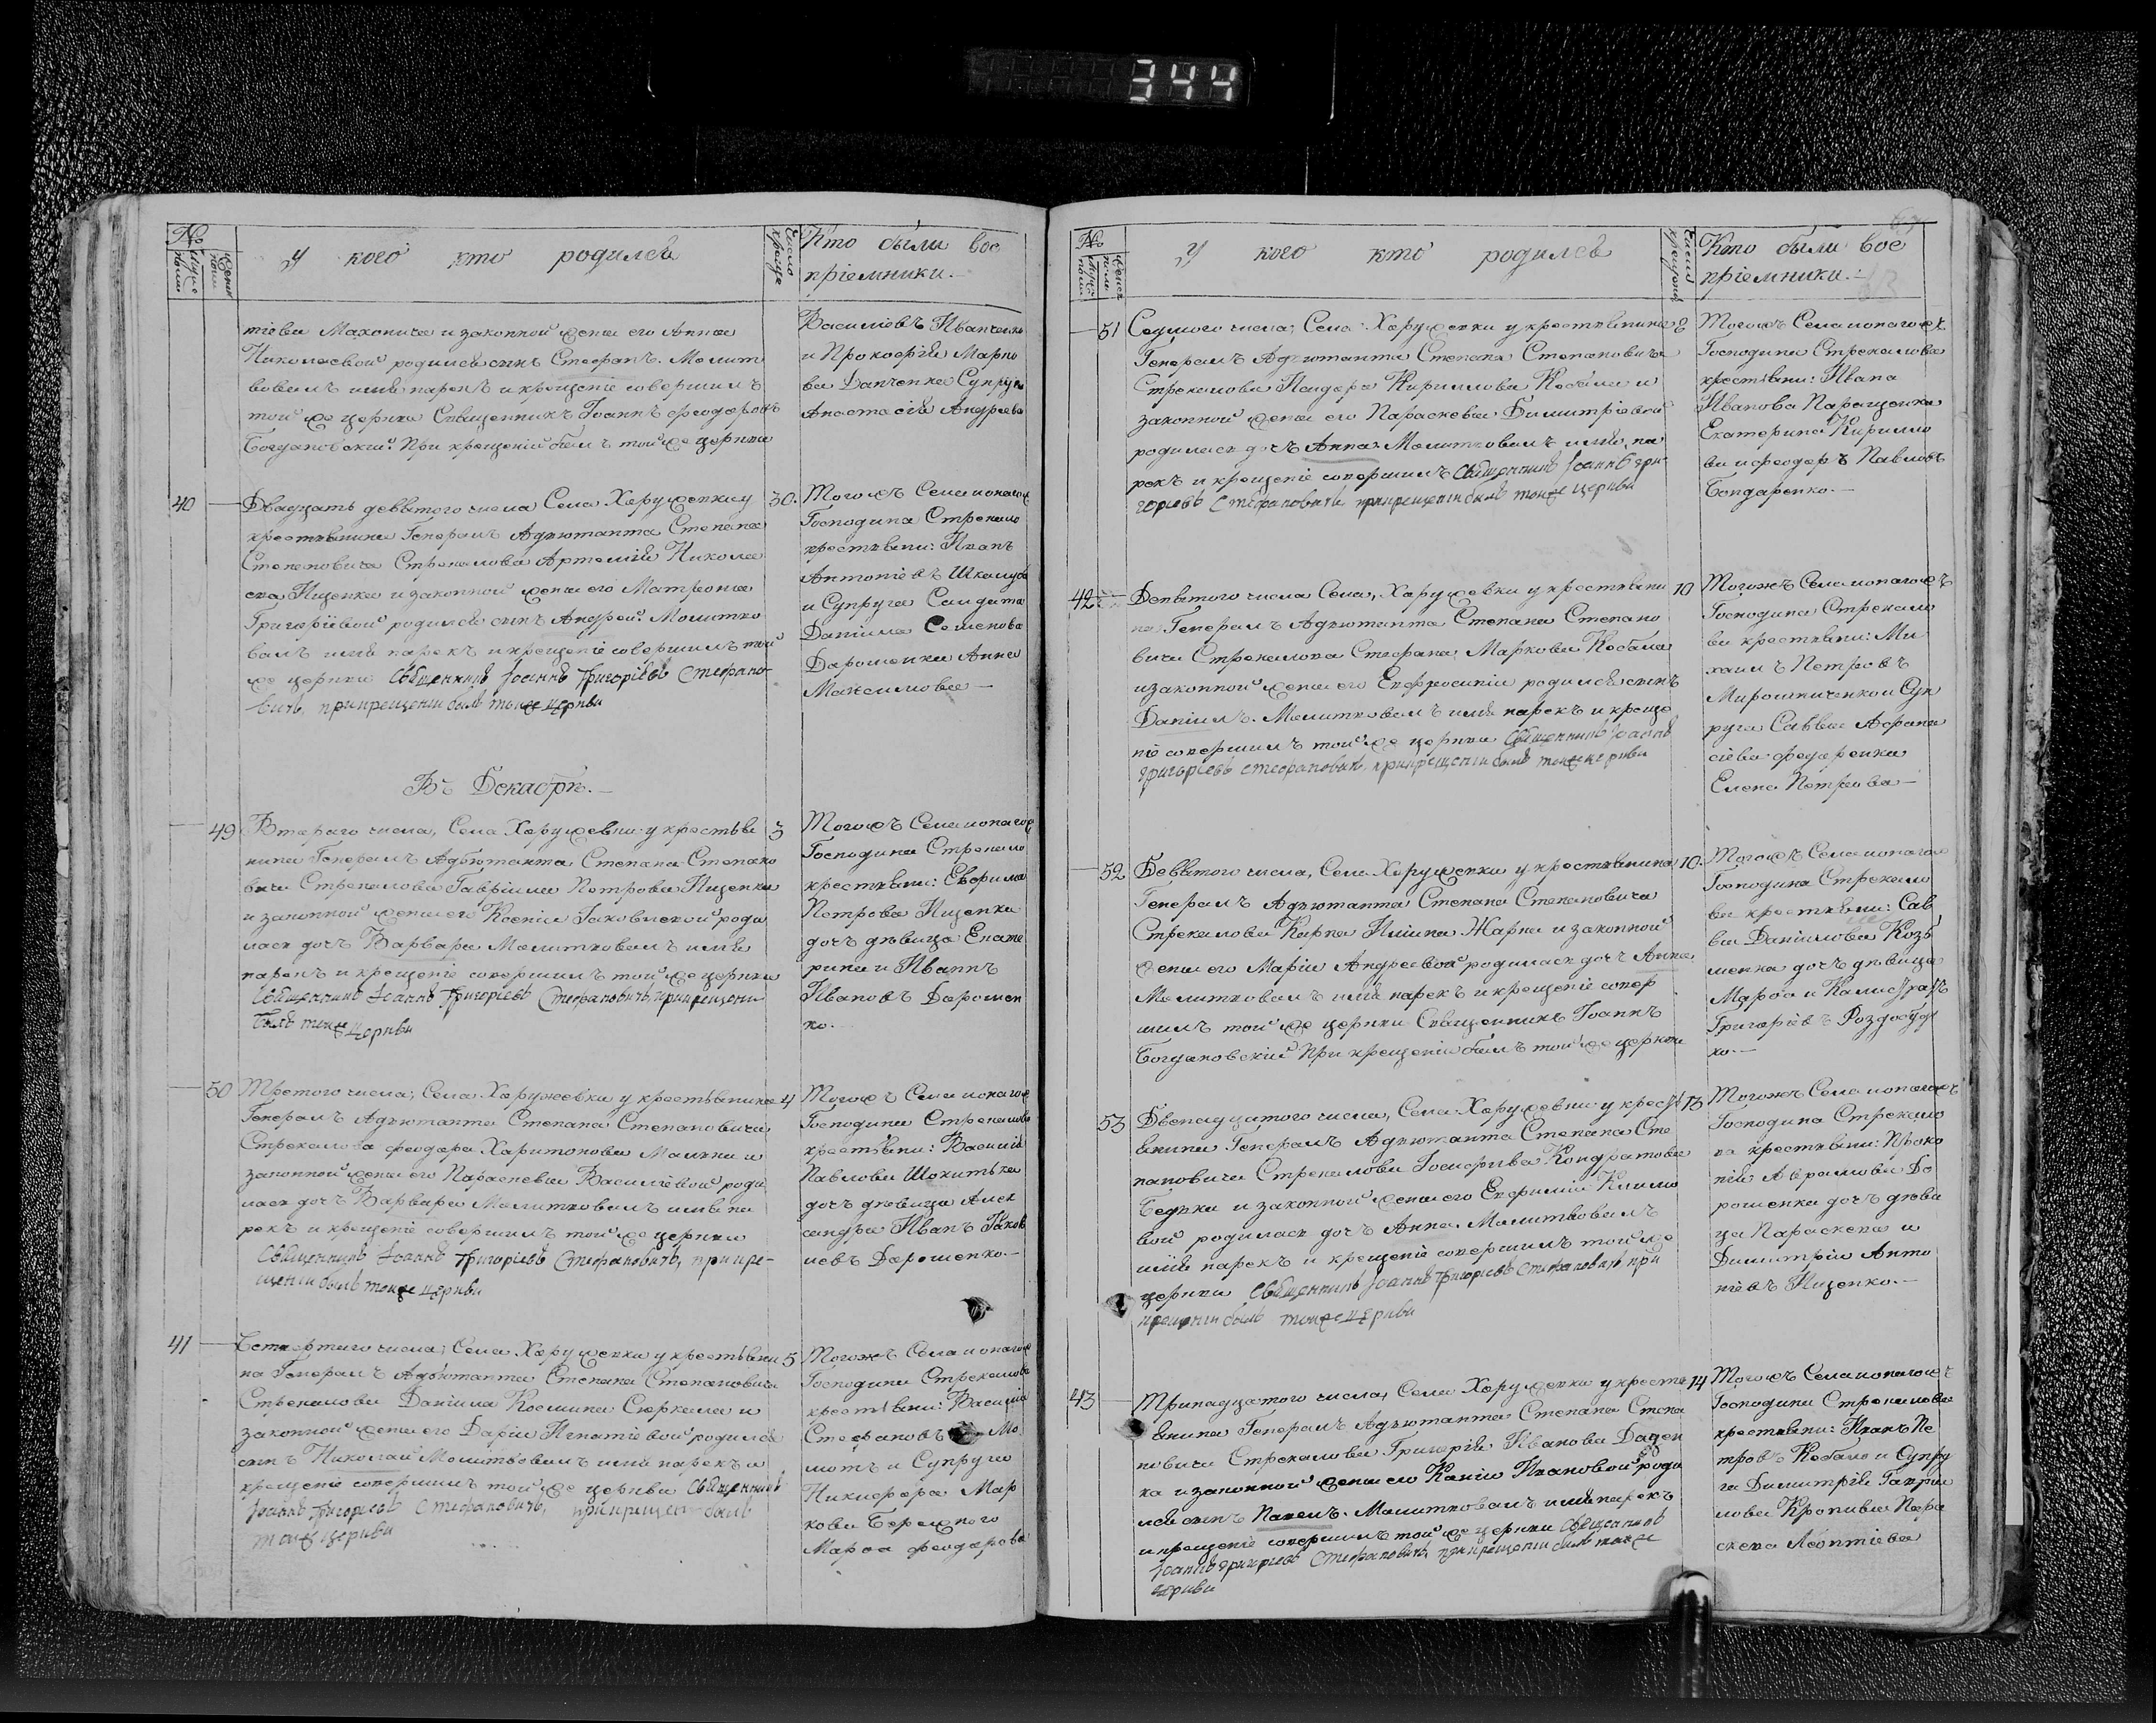 344
№
Мужс
пола
Женск
пола
У кого кто родился
Число
креще
Кто были вос
пріемники.
тіева Махонича и законной жены его Анны
Николаевой родился сынъ Стефанъ. Молит
вовалъ имя нарекъ и крещеніе совершилъ
той же церкви Священникъ Іоаннъ Феодоровъ
Богдановскій. При крещеніи былъ той же церкви
Василіевъ Иванченко
и Прокофія Марко
ва Данченка Супруга
Анастасія Андреева
40
Двадцать девятого числа Села Харужевки у
крестьянина Генералъ Адъютанта Степана
Степановича Стрекалова Артемія Никола
ева Ищенка и законной жены его Матроны
Григоріевой родился сынъ Андрей. Молитво
валъ имя нарекъ и крещеніе совершилъ той
же церкви Священникъ Іоаннъ Григоріевъ Стефано-
вичъ, при крещеніи былъ тоя же церкви
30.
Тогожъ Села и оногожъ
Господина Стрекало
крестьяни: Иванъ
Антоніевъ
и Супруга Солдата
Даніила Семенова
Дорошенка Анна
Максимова —
Въ Декабрѣ. —
49
Втораго числа, Села Харужевки у крестья
нина Генералъ Адъютанта Степана Степано
вича Стрекалова Гавріила Петрова Ищенка
и законной жены его Ксеніи Іаковлевой роди
лася дочъ Варвара Молитвовалъ имя
нарекъ и крещеніе совершилъ той же церкви
Священникъ Іоаннъ Григоріевъ Стефановичъ, при крещеніи
былъ тоя же церкви
3
Тогожъ Села и оногожъ
Господина Стрекало
крестьяни: Ефрима
Петрова Ищенка
дочъ дѣвица Екате
рина и Иваннъ
Ивановъ Дорошен
ко.
50
Третого числа, Села Харужевки у крестьянина
Генералъ Адъютанта Степана Степановича
Стрекалова Феодора Харитонова Малки и
законной жены его Параскевы Василіевой роди
лася дочъ Варвара Молитвовалъ имя на
рекъ и крещеніе совершилъ той же церкви
Священникъ Іоаннъ Григоріевъ Стефановичъ, при кре-
щеніи былъ тоя же церкви
4
Тогожъ Села и оногожъ
Господина Стрекалова
крестьяни: Василія
Павлова
дочъ дѣвица Алек
сандра Иванъ Іаков
левъ Дорошенко. —
41
Четвертаго числа, Села Харужевки у крестьяни
на Генералъ Адъютанта Степана Степановича
Стрекалова Даніила Космина Сюркала и
законной жены его Даріи Игнатіевой родился
сынъ Николай Молитвовалъ имя нарекъ и
крещеніе совершилъ той же церкви Священникъ
Іоаннъ Григоріевъ Стефановичъ, при крещеніи былъ
тоя же церкви
5
Тогожъ Села и оногожъ
Господина Стрекалова
крестьяни: Василій
Стефановъ Мо
мотъ и Супруга
Никифора Мар
кова Бережного
Марфа Феодорова
67
№
Мужс
пола
Женск
пола
У кого кто родился
Число
крещенія
Кто были вос
пріемники. —
51
Седмого числа, Села Харужевки у крестьянина
Генералъ Адъютанта Степана Степановича
Стрекалова Исидора Кириллова Кобали и
законной жены его Параскевы Димитріевой
родилася дочъ Анна. Молитвовалъ имя на
рекъ и крещеніе совершилъ Священникъ Іоаннъ Гри-
горіевъ Стефановичъ, при крещеніи былъ тоя же церкви
8
Тогожъ Села и оногожъ
Господина Стрекалова
крестьяни: Ивана
Иванова Паращенка
Екатерина Кирилло
ва и Феодоръ Павловъ
Бондаренко. —
42
Девятого числа Села, Харужевки у крестьяни
на Генералъ Адъютанта Степана Степано
вича Стрекалова Стефана Маркова Кобала
и законной жены его Евфросиніи родился сынъ
Даніилъ. Молитвовалъ имя нарекъ и креще
ніе совершилъ той же церкви Священникъ Іоаннъ
Григоріевъ Стефановичъ, при крещеніи былъ тоя же церкви
10
Тогожъ Села и оногожъ
Господина Стрекало
ва крестьяни: Ми
хаилъ Петровъ
Мирошниченко и Суп
руга Саввы Афана
сіева Федоренка
Елена Петрова —
52
Девятого числа, Села Харужевки у крестьянина
Генералъ Адъютанта Степана Степановича
Стрекалова Карпа Ильина Жарка и законной
жены его Маріи Андреевой родилася дочъ Анна
Молитвовалъ имя нарекъ и крещеніе совер
шилъ той же церкви Священникъ Іоаннъ
Богдановскій При крещеніи былъ той же церкви
10.
Тогожъ Села и оногожъ
Господина Стрекало
ва крестьяни: Сав
ва Даніилова Козь
менка дочъ дѣвица
Марфа и Калистратъ
Григоріевъ Роздобудь
ко. —
53
Двенадцатого числа, Села Харужевки у крест
янина Генералъ Адъютанта Степана Сте
пановича Стрекалова Іосифа Кондратова
Бедька и законной жены его Евфиміи Климо
вой родилася дочъ Анна. Молитвовалъ
имя нарекъ и крещеніе совершилъ той же
церкви Священникъ Іоаннъ Григоріевъ Стефановичъ при
крещеніи былъ тоя же церкви
13
Тогожъ Села и оногожъ
Господина Стрекало
ва крестьяни: Проко
пія Аврамова До
рошенка дочъ дѣви
ца Параскева и
Димитрій Анто
ніевъ Ищенко. —
43
Тринадцатого числа, Села Харужевки у крестья
янина Генералъ Адъютанта Степана Степа
новича Стрекалова Григорія Иванова Дацен
ка и законной жены его Ксеніи Ивановой роди
лся сынъ Павелъ. Молитвовалъ имя нарекъ
и крещеніе совершилъ той же церкви Священникъ
Іоаннъ Григоріевъ Стефановичъ, при крещеніи былъ тоя же
церкви
14
Тогожъ Села и оногожъ
Господина Стрекалова
крестьяни: Иванъ Пе
тровъ Кобало и Супру
га Димитрія Гаврии
лова Кропивы Пара
скева Леонтіева